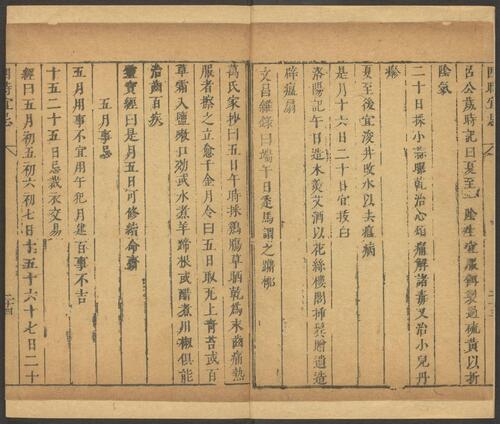 四時宜忌
呂公歲時記曰夏至一陰生宜服餌硫黃以折
陰氣
二十日採小蒜曝乾治心痛解諸毒又治小兒丹
疹
夏至後宜浚井改水以去瘟病
是月十六日二十日宜拔白
洛陽記午日造朮羹艾酒以花絲樓閣插鬢贈遺造
辟瘟扇
文昌雜錄曰端午日走馬謂之躤柳
葛氏家抄曰五日午時採鶴膓草晒乾為末齒痛熱
服者擦之立愈千金月令曰五日取屋上青苔或百
草霜入鹽漱口効或水煮羊蹄根或醋煮川椒俱能
治齒百疾
靈寶經曰是月五日可修續命齋
五月事忌
五月用事不宜用午犯月建百事不吉
十五二十五日忌裁衣交易
經曰五月初五初六初七日十五十六十七日二十
四時宜忌
二十四